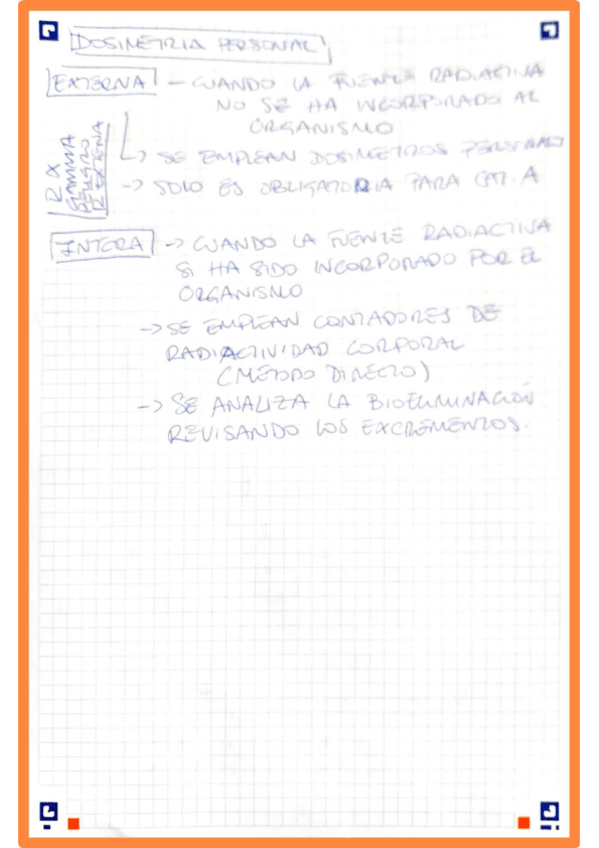 DOSIMETRIA PERSONAL
EXTERNA - CUANDO LA FUENTE RADIACTIVA
NO SE HA INCORPORADO AL
ORGANISMO
-> SE EMPLEAN DOSIMETROS PERSONALES
-> SOLO ES OBLIGATORIA PARA CAT. A
R X
GAMMA
PELIGRO
R EXTERNA
INTERA -> CUANDO LA FUENTE RADIACTIVA
SI HA SIDO INCORPORADO POR EL
ORGANISMO
-> SE EMPLEAN CONTADORES DE
RADIACTIVIDAD CORPORAL
(METODO DIRECTO)
-> SE ANALIZA LA BIOELIMINACIÓN
REVISANDO LOS EXCREMENTOS.